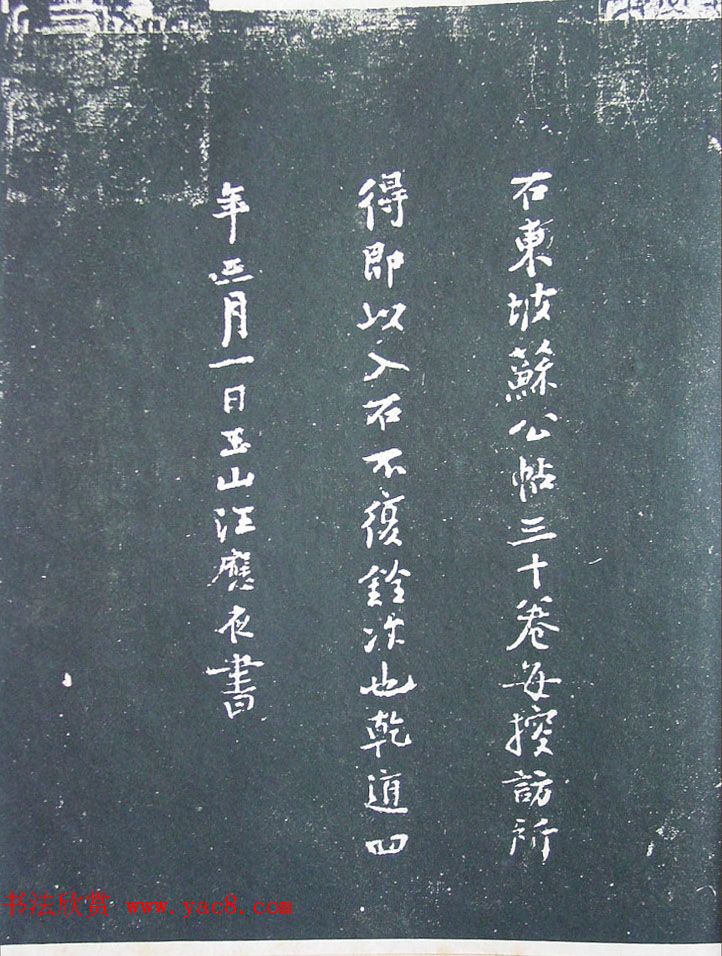 右東坡蘇公帖三十卷每搜訪所
得即以入石不復銓次也乾道四
年三月一日玉山汪應辰書
书法欣赏 www.yac8.com